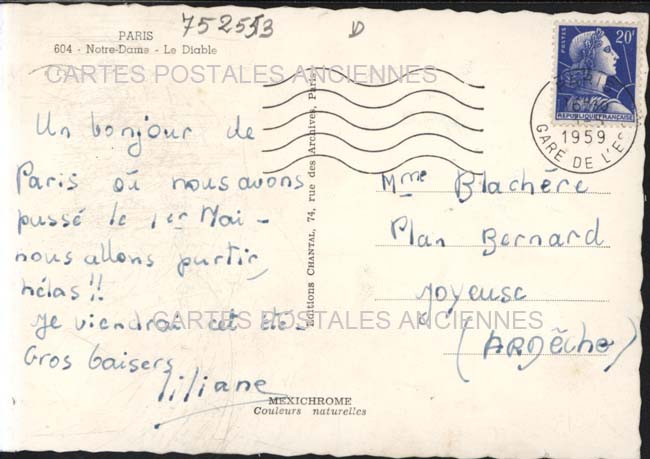 752553
PARIS
604 - Notre-Dame - Le Diable
CARTES POSTALES ANCIENNES
Un bonjour de
Paris où nous avons
passé le 1er Mai -
nous allons partir,
hélas !!
Je viendrai cet été -
Gros baisers
Liliane
Editions CHANTAL, 74, rue des Archives, Paris
POSTES
20F
REPUBLIQUE FRANÇAISE
1959
GARE DE L'ES
Mme Blachère
Plan Bernard
Joyeuse
(ARDêche)
CARTES POSTALES ANCIENNES
MEXICHROME
Couleurs naturelles